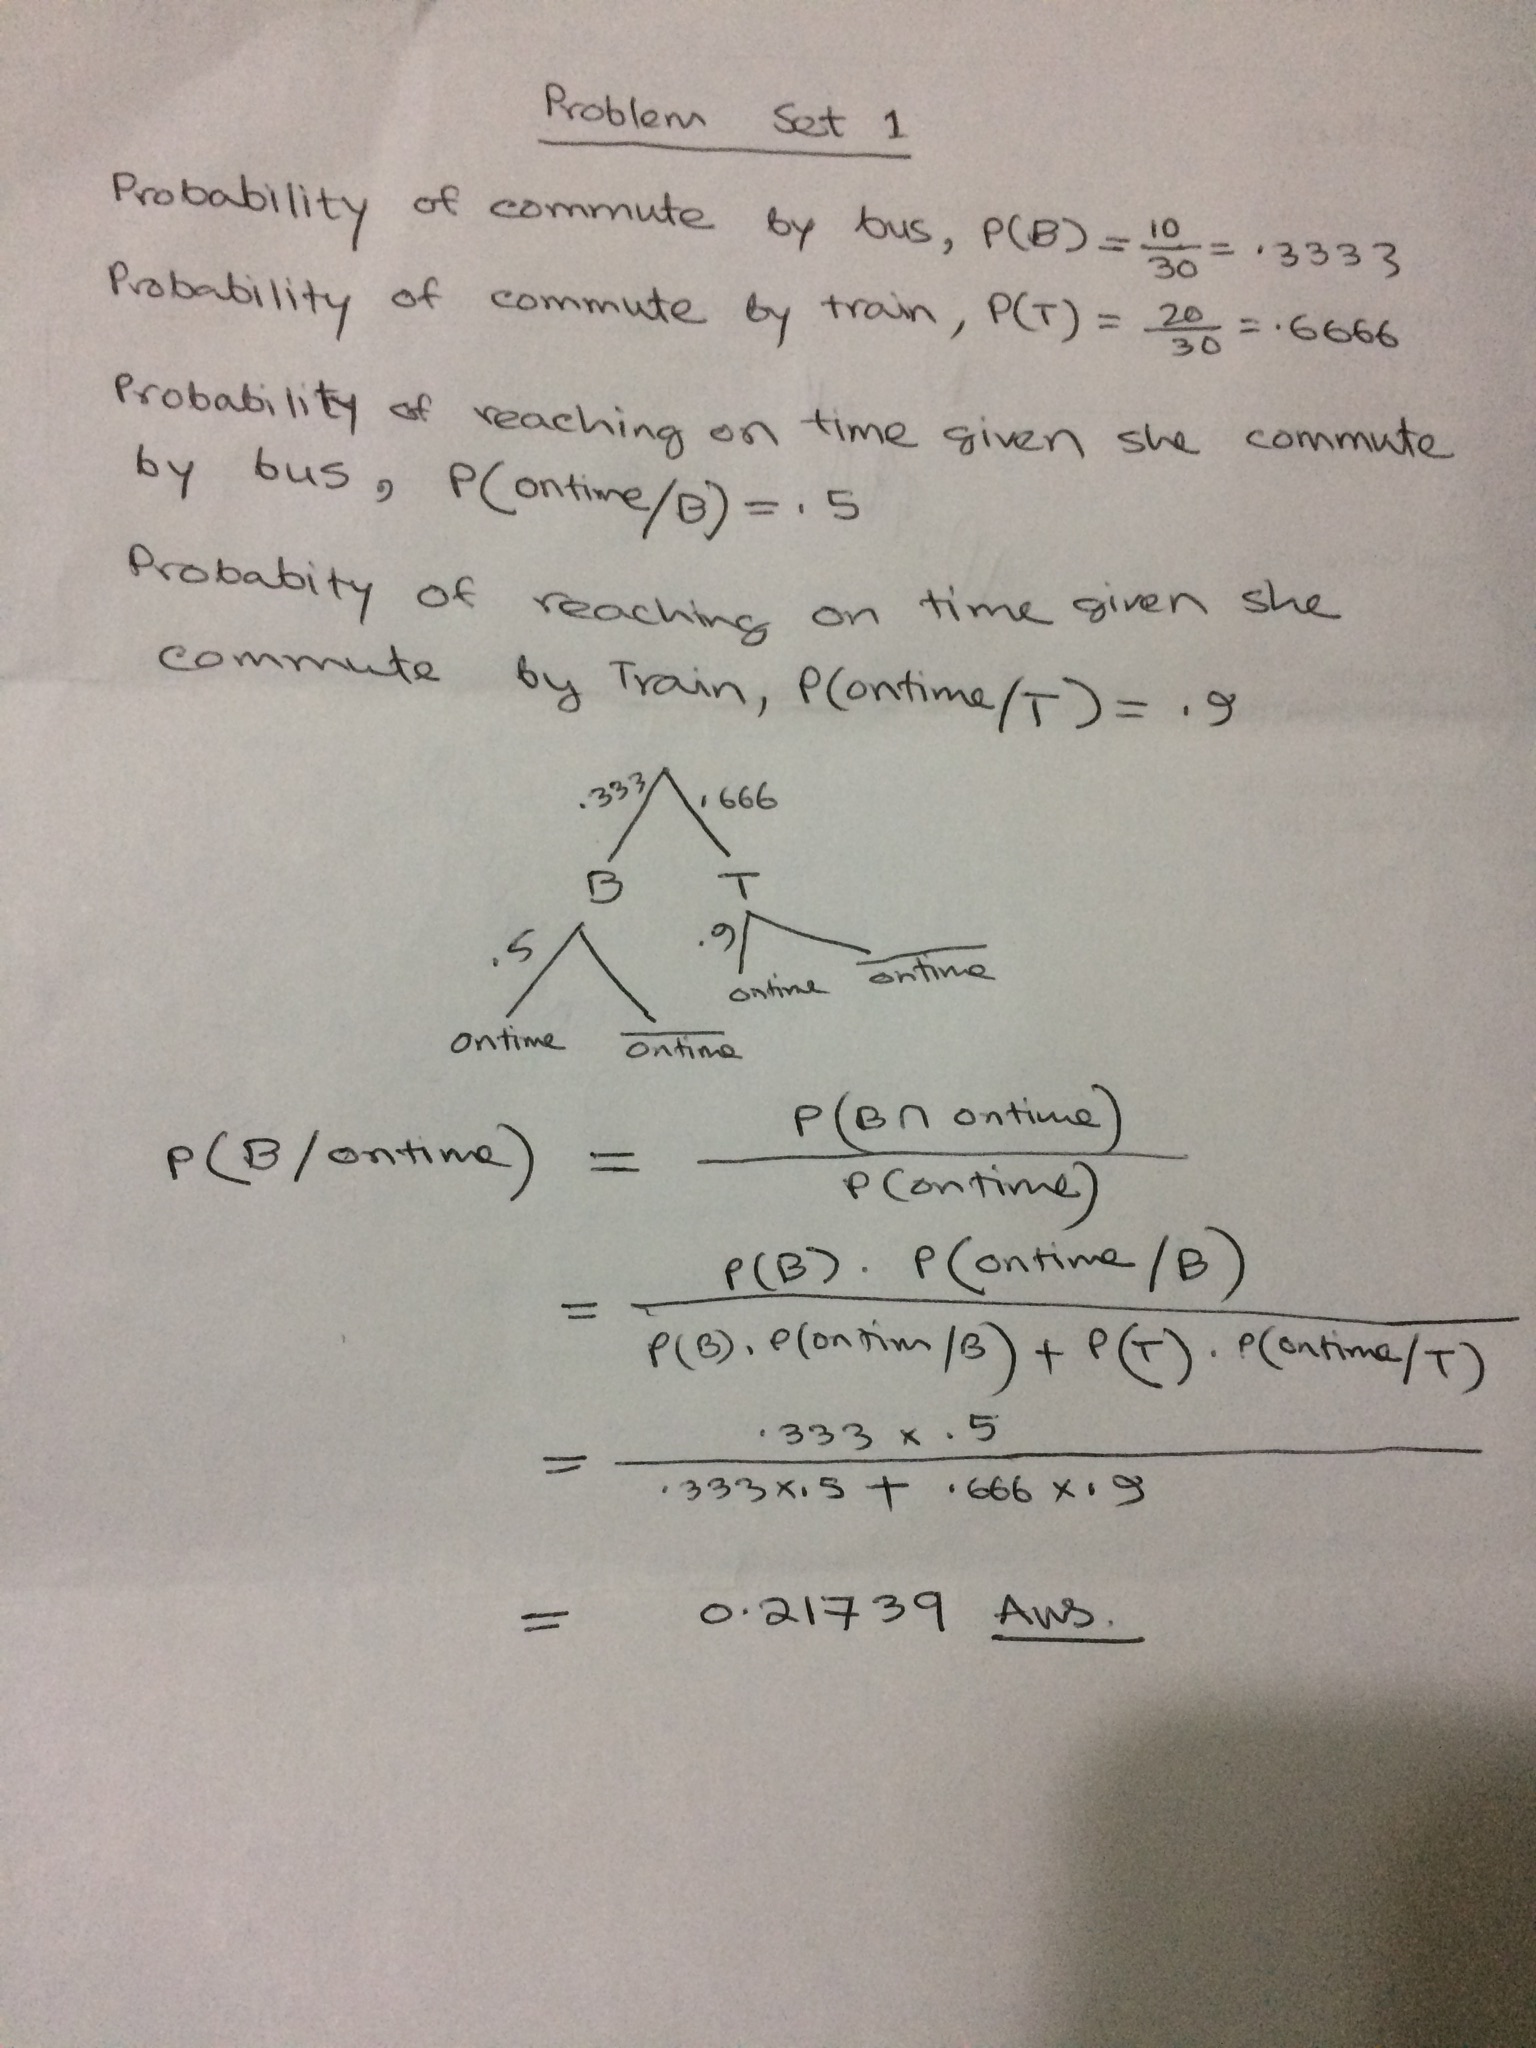 Problem Set 1
Probability of commute by bus, P(B) = 10/30 = .3333
Probability of commute by train, P(T) = 20/30 = .6666
Probability of reaching on time given she commute
by bus, P(ontime/B) = .5
Probabity of reaching on time given she
commute by Train, P(ontime/T) = .9
.333 .666
B T
.5 .9
ontime o̅n̅t̅i̅m̅e̅
ontime o̅n̅t̅i̅m̅e̅
P(B/ontime) = P(B∩ontime) / P(ontime)
= P(B). P(ontime/B)
P(B). P(ontim/B) + P(T). P(ontime/T)
= .333 x .5
.333 x .5 + .666 x .9
= 0.21739 Ans.